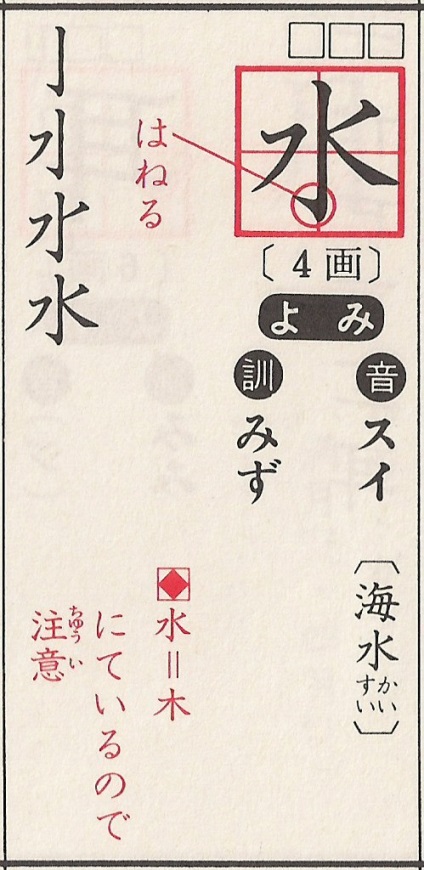 水
〔4画〕
よみ
音 スイ 〔海水 かいすい〕
訓 みず
はねる
◆水=木
にているので
注意 ちゅうい
亅
水